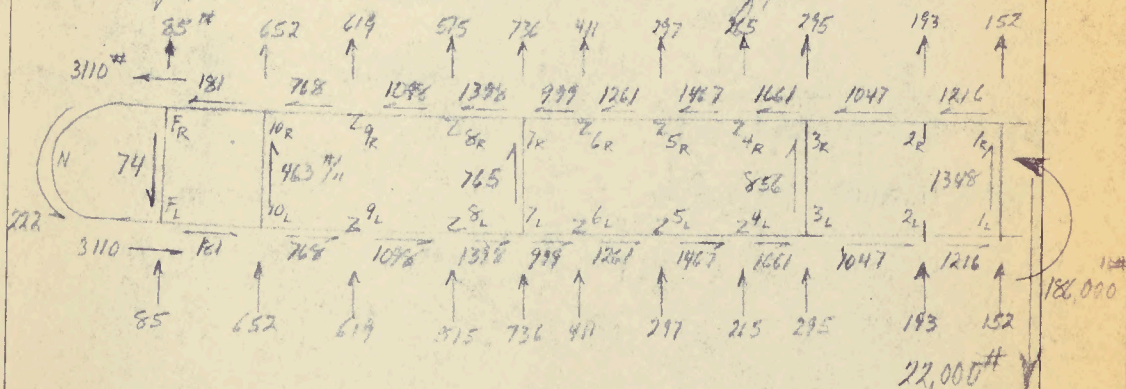 85# 652 619 515 736 411 297 265 295 193 152
3110#
181 768 1098 1398 999 1261 1467 1661 1047 1216
FR 10R Z9R Z8R 7R Z6R Z5R Z4R 3R 2R 1R
N 74 463 #/" 765 856 1348
FL 10L Z9L Z8L 7L Z6L Z5L Z4L 3L 2L 1L
222
3110 181 768 1098 1398 999 1261 1467 1661 1047 1216
186,000"#
85 652 619 515 736 411 297 265 295 193 152
22,000#